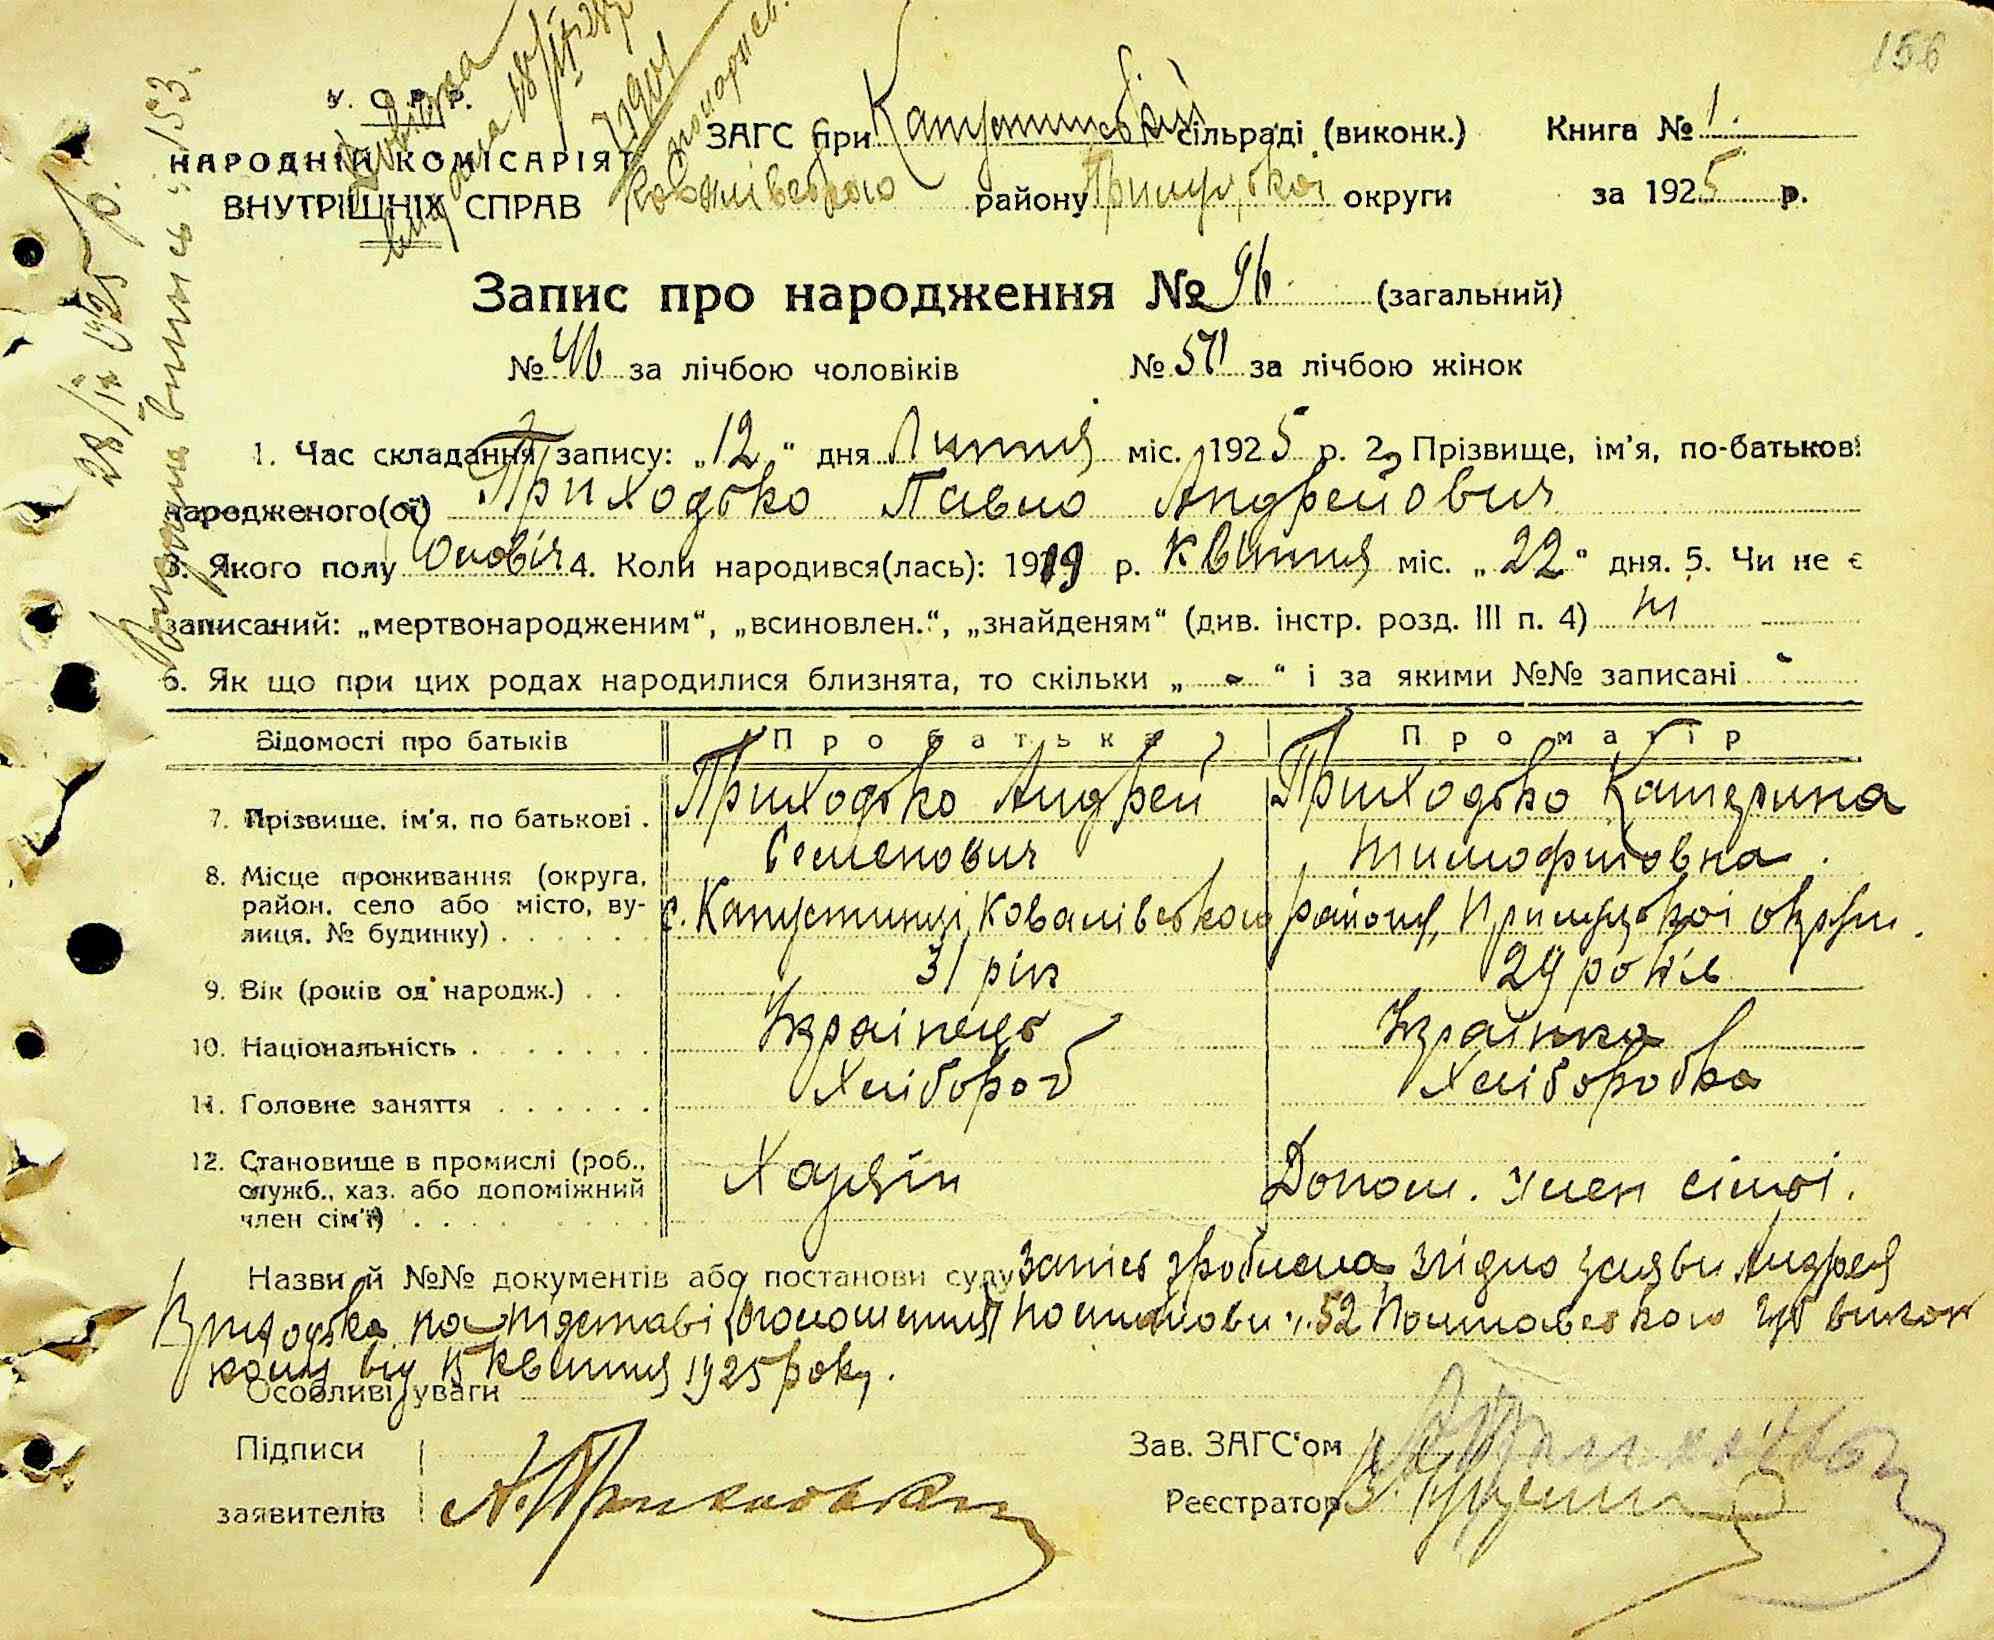 156
У. С. Р. Р.
НАРОДНІЙ КОМІСАРІЯТ
ВНУТРІШНІХ СПРАВ
28/ 1925 р.
Видана випись № 153.
ЗАГС при Капустинській сільраді (виконк.) Книга № 1.
Ковалівського району Прилуцької округи за 1925 р.
Запис про народження № 96. (загальний)
№ 46 за лічбою чоловіків № за лічбою жінок
1. Час складання запису: „12“ дня Липня міс. 1925 р. 2, Прізвище, ім'я, по-батькові
народженого(ої) Приходько Павло Андрейович
3. Якого полу Чоловіч 4. Коли народився(лась): 1919 р. Квітня міс. „22“ дня. 5. Чи не є
записаний: „мертвонародженим“, „всиновлен.“, „знайденям“ (див. інстр. розд. III п. 4) ні
6. Як що при цих родах народилися близнята, то скільки „ - “ і за якими №№ записані -
Відомості про батьків Про батька Про матір
7. Прізвище, ім'я, по батькові . Приходько Андрей Семенович Приходько Катерина Тимофиовна .
8. Місце проживання (округа, район, село або місто, вулиця, № будинку) . . . . . с. Капустинці Ковалівського району, Прилуцької округи .
9. Вік (років од народж.) . . 31 рік 29 років
10. Національність . . . . . . . Українець Українка
11. Головне заняття . . . . . . Хлібороб Хліборобка
12. Становище в промислі (роб., служб., хаз. або допоміжний член сім'ї) . . . . Хазяїн Допом. член сімьі.
Назви й №№ документів або постанови суду Запись зроблена згідно заяви Андрея
Приходька на підставі оголошення постанови № 52 Полтавського губ викон
кому від 15 Квітня 1925 року.
Особливі уваги
Підписи Зав. ЗАГС'ом
заявителів Реєстратор